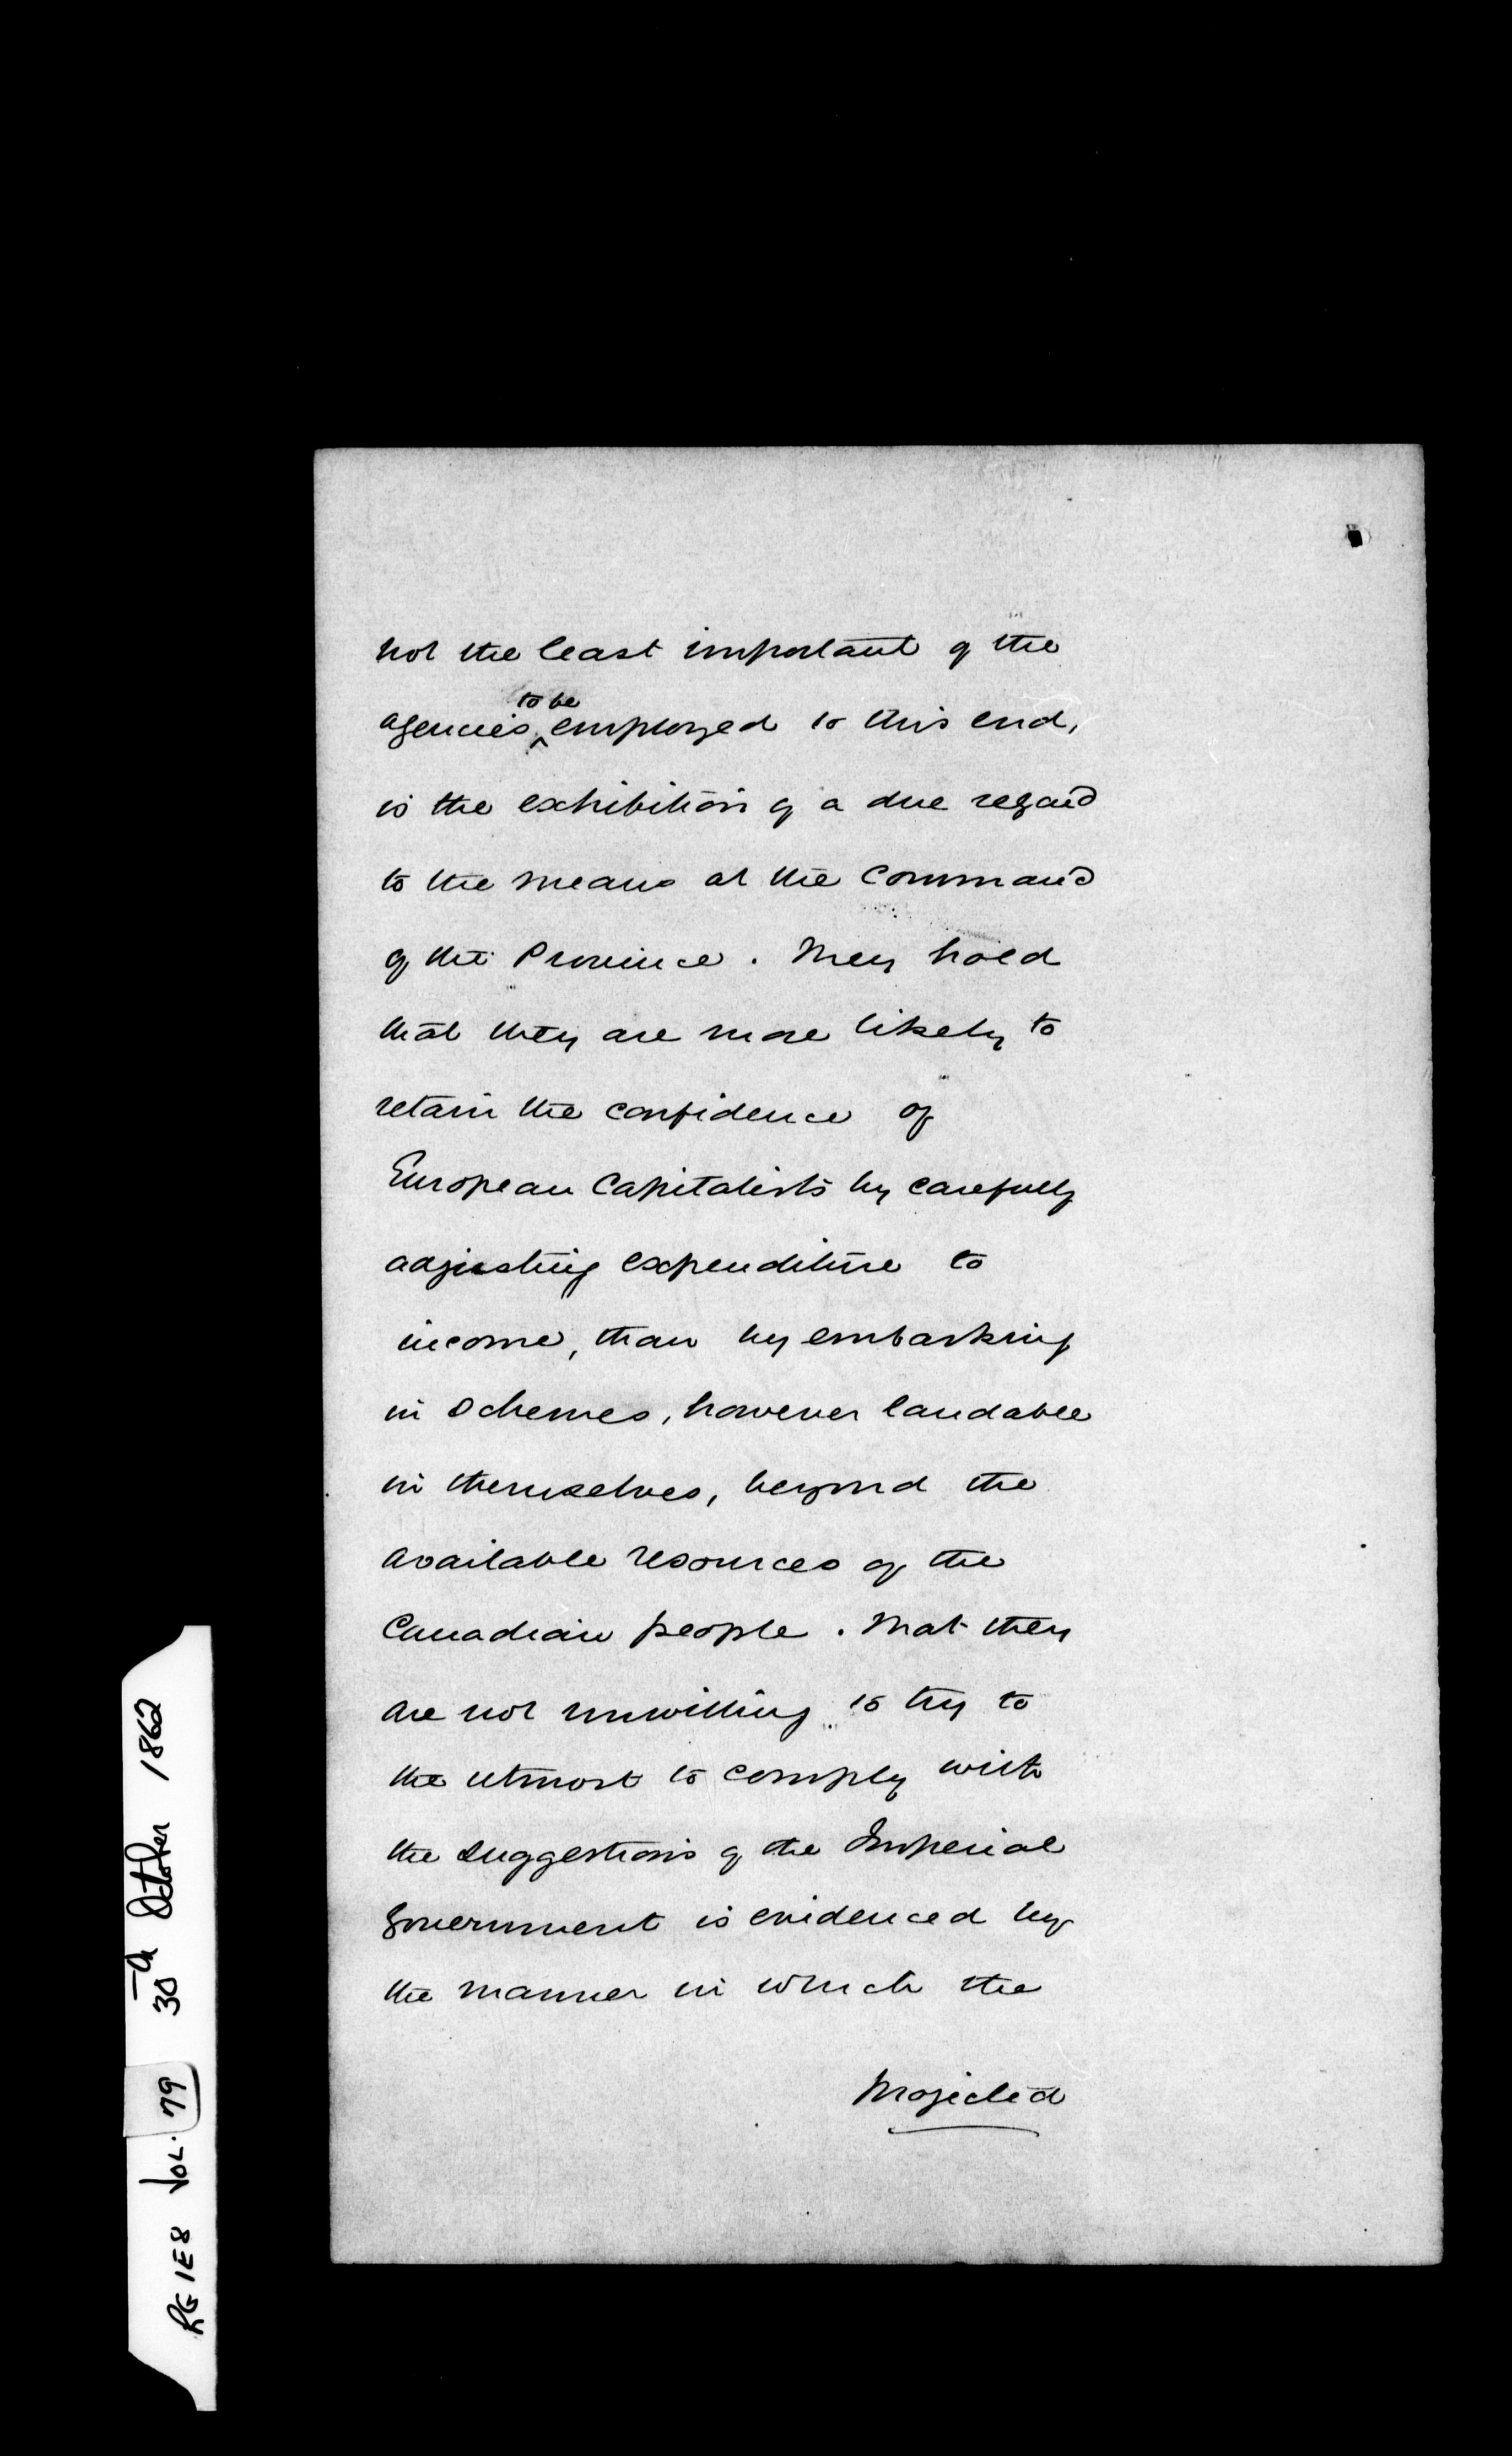 not the least important of the
to be
agencies ^ employed to this end,
is the exhibition of a due regard
to the means at the command
of the Province. They hold
that they are more likely to
retain the confidence of
European Capitalists by carefully
adjusting expenditure to
income, than by embarking
in schemes, however laudable
in themselves, beyond the
available resources of the
Canadian people. That they
are not unwilling to try to
the utmost to comply with
the suggestions of the Imperial
Government is evidenced by
the manner in which the
Projected
RG 1E8 VOL. 79 30th October 1862